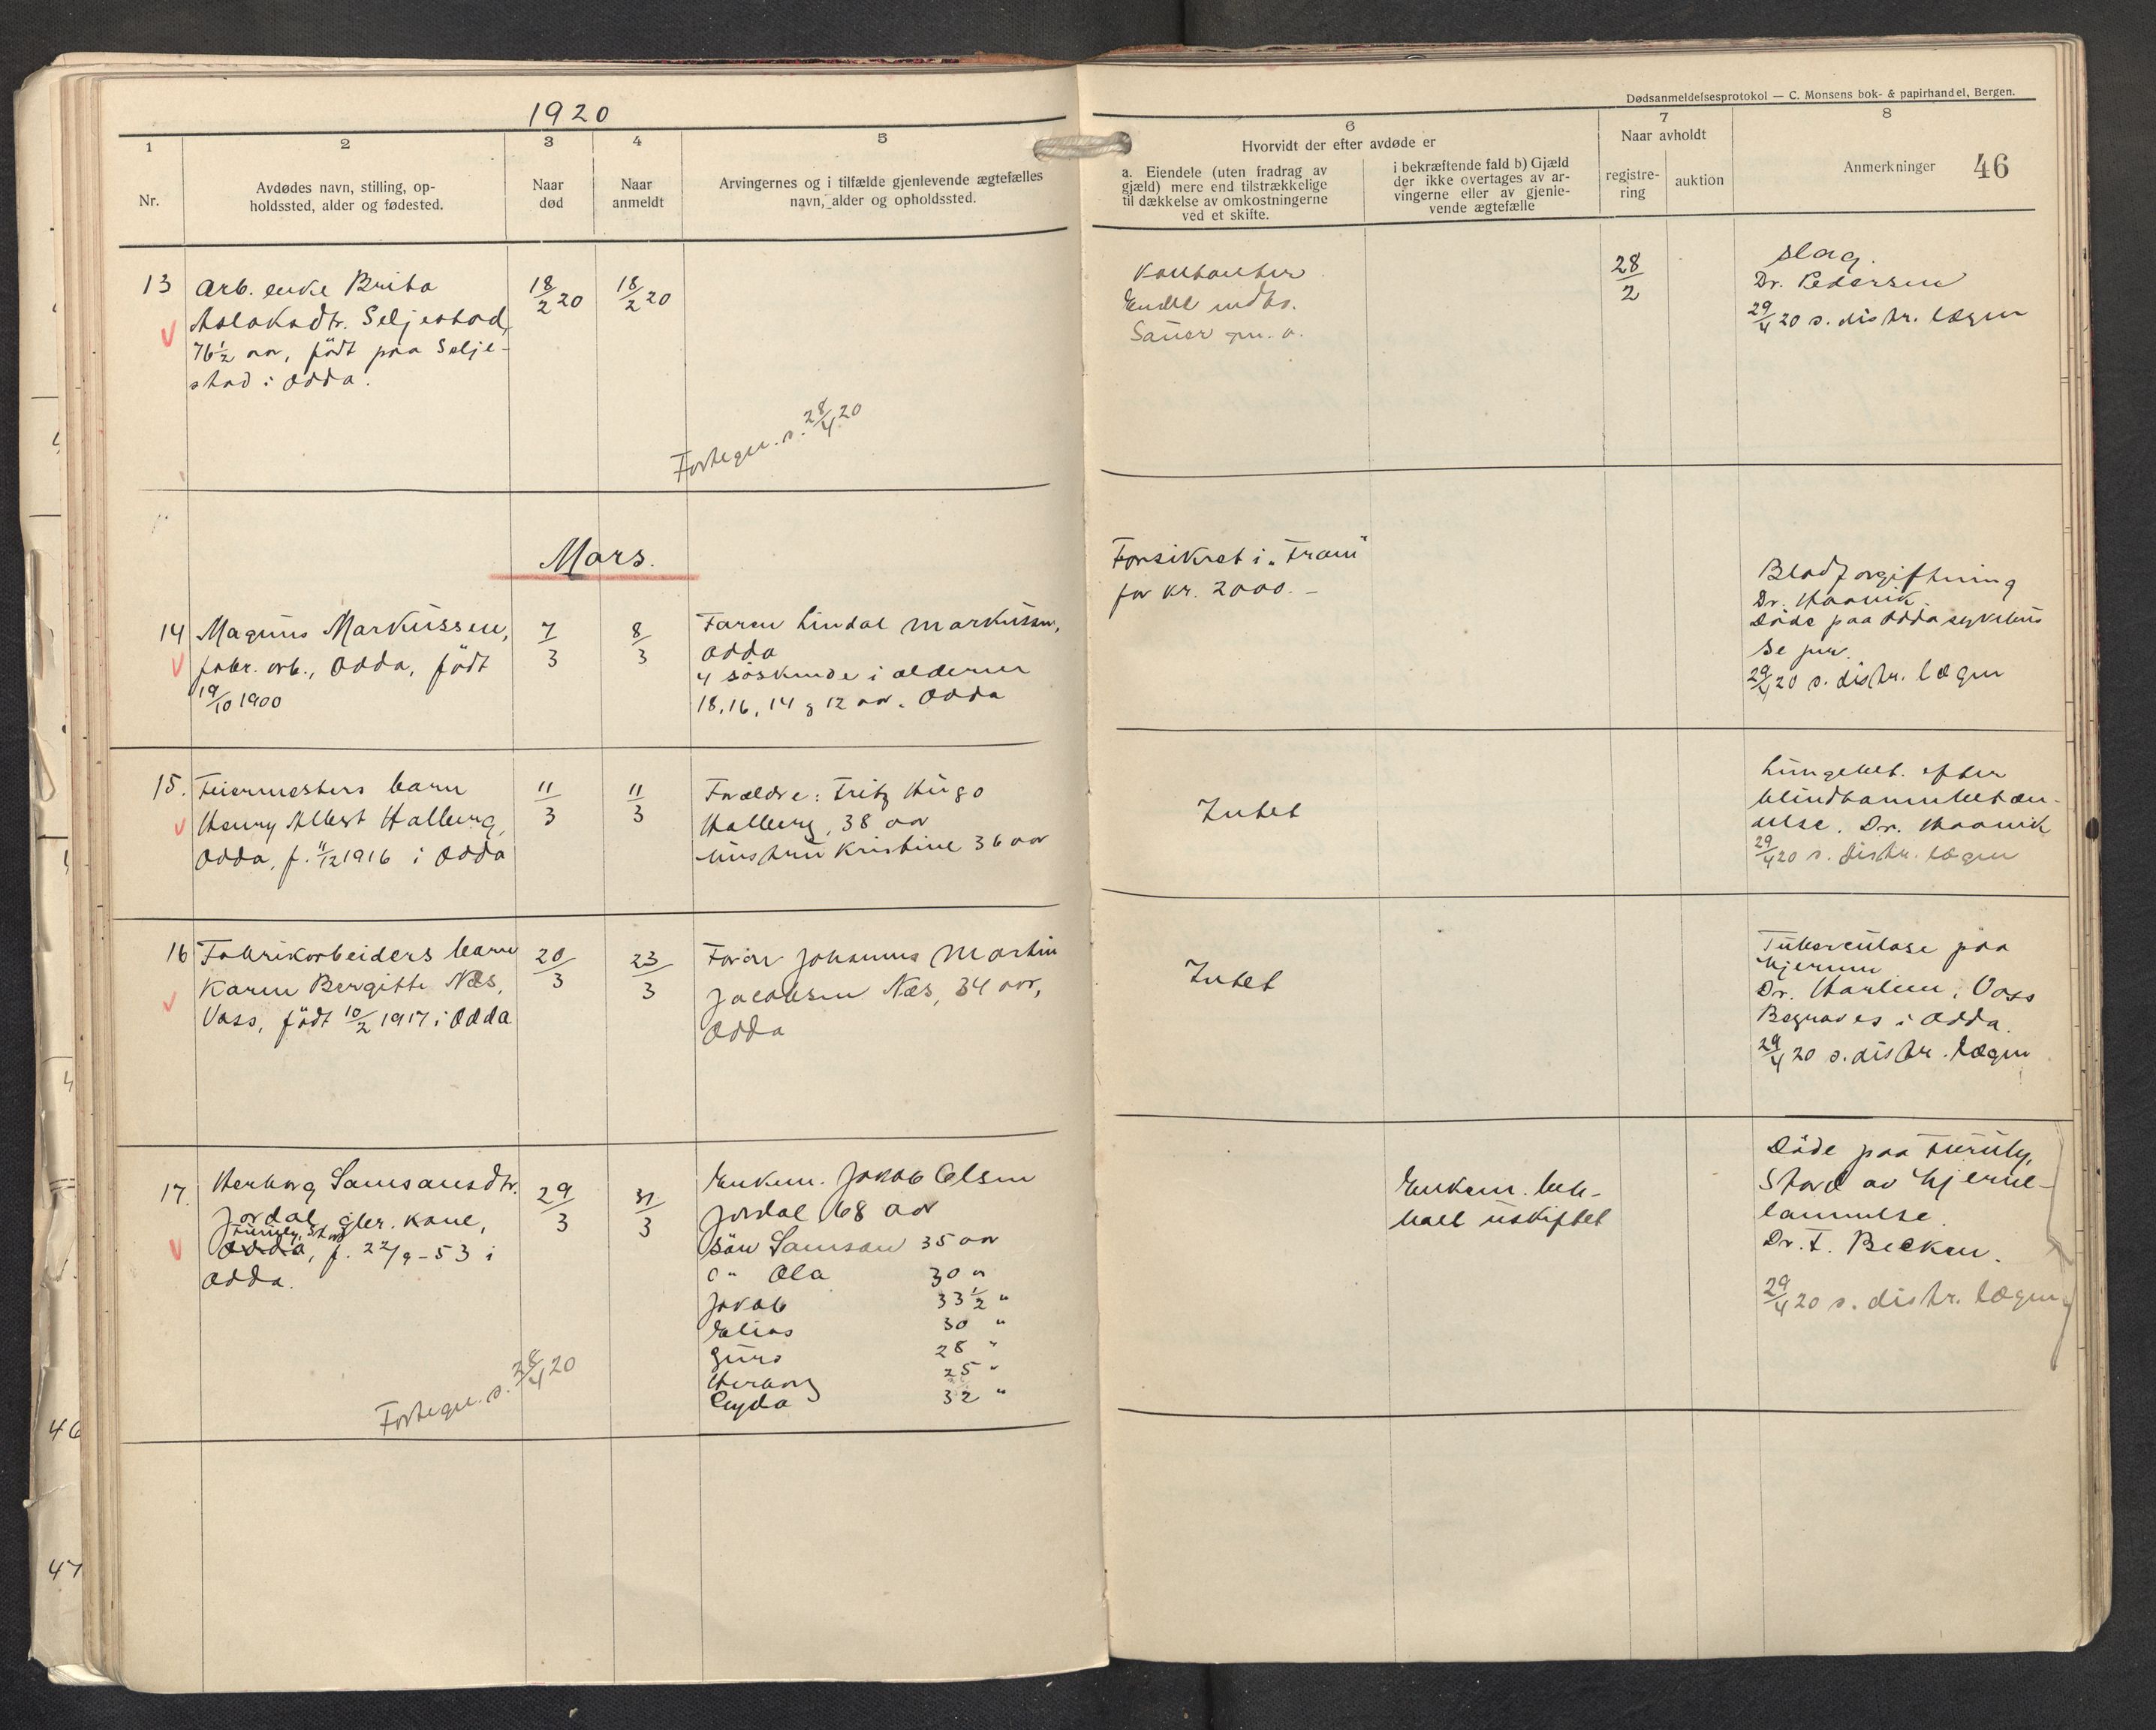 1920
Dødsanmeldelsesprotokol — C. Monsens bok- & papirhandel, Bergen.
1
Nr.
2
Avdødes navn, stilling, op-
holdssted, alder og fødested.
3
Naar
død
4
Naar
anmeldt
5
Arvingernes og i tilfælde gjenlevende ægtefælles
navn, alder og opholdssted.
6
Hvorvidt der efter avdøde er
a. Eiendele (uten fradrag av
gjæld) mere end tilstrækkelige
til dækkelse av omkostningerne
ved et skifte.
i bekræftende fald b) Gjæld
der ikke overtages av ar-
vingerne eller av gjenle-
vende ægtefælle
7
Naar avholdt
registre-
ring
auktion
8
Anmerkninger
46
13
Arb. enke Brita
Aslaksdtr. Seljestad,
76½ aar, født paa Selje-
stad i Odda.
18/2 20
18/2 20
Fortegn. s. 28/4 20
Kontanter
Endel indbo.
Sauer m. v.
28/2
Slag.
Dr. Pedersen
29/4 20 s. distr. lægen
Mars.
14
Magnus Markussen,
fabr. arb., Odda, født
19/10 1900
7/3
8/3
Faren Lindal Markussen,
Odda
4 søskende i alderen
18, 16, 14 g 12 aar. Odda
Forsikret i „Fram"
for kr. 2000. –
Blodforgiftning
Dr. Haavik.
Døde paa Odda sykehus
Se jnr.
29/4 20 s. distr. lægen
15.
Feiermesters barn
Henry Albert Halberg,
Odda, f. 11/12 1916 i Odda
11/3
11/3
Forældre: Fritz Hugo
Halberg, 38 aar
hustru Kristine 36 aar
Intet
Lungebet. efter
blindtarmbetæn-
delse. Dr. Haavik
29/4 20 s. distr. lægen
16
Fabrikarbeiders barn
Karen Bergitte Næs,
Voss, født 10/2 1917 i Odda
20/3
23/3
Faren Johannes Martin
Jacobsen Næs, 34 aar,
Odda
Intet
Tuberculose paa
hjernen
Dr. Harlem, Voss
Begraves i Odda.
29/4 20 s. distr. lægen
17.
Herborg Samsonsdtr.
Jordal, gbr. kone,
Furuly, Stord
Odda, f. 22/9 - 53 i
Odda.
29/3
31/3
Enkem. Jakob Olsen
Jordal 68 aar
Søn Samson 35 aar
o" Ola 30 "
Jakob 33½ "
Elias 30 "
Guro 28 "
Herborg 25 "
Gyda 32 "
Fortegn. s. 28/4 20
Enkem. beh-
holt uskiftet
Døde paa Furuly,
Stord av hjerne-
lammelse.
Dr. T. Becken.
29/4 20 s. distr. lægen
46
47